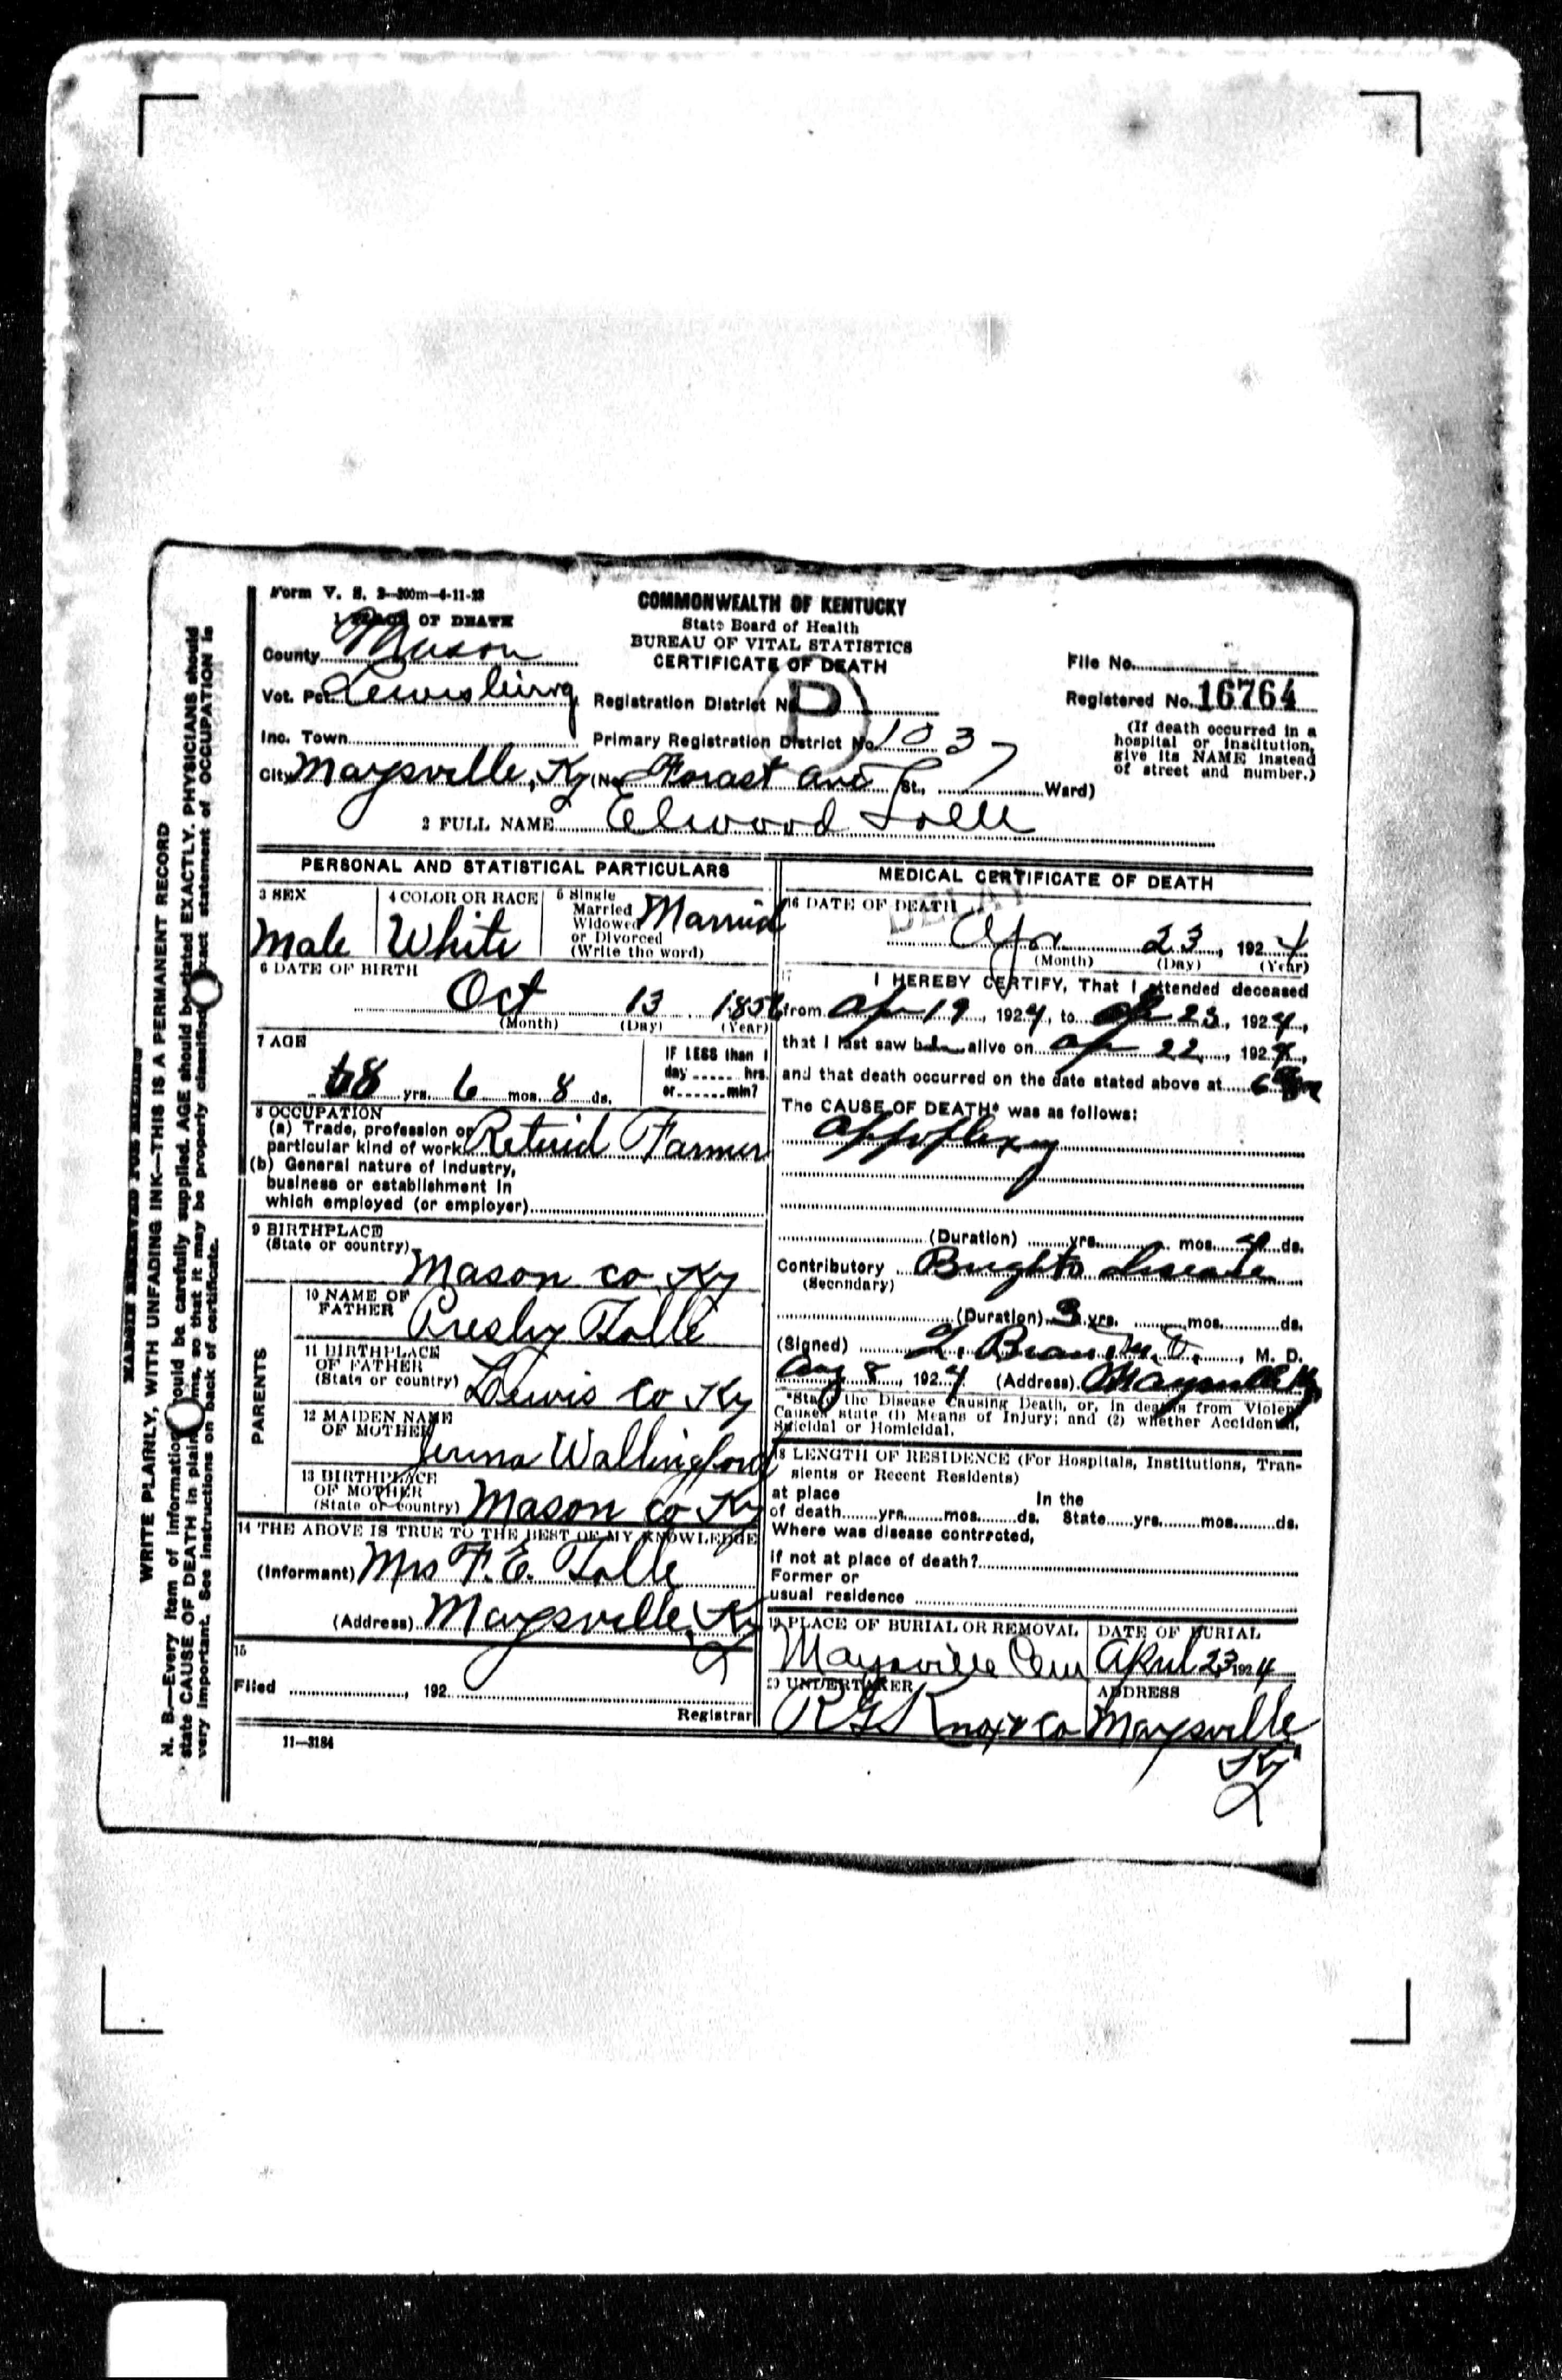 Form V. S. 2—300m—4-11-23
COMMONWEALTH OF KENTUCKY
State Board of Health
BUREAU OF VITAL STATISTICS
CERTIFICATE OF DEATH
1 PLACE OF DEATH
County Mason
Vot. Pct. Lewisburg
Registration District No.
D
File No.
Registered No. 16764
Inc. Town
Primary Registration District No. 1037
(If death occurred in a
hospital or institution,
give its NAME instead
of street and number.)
City Maysville, Ky (No. Forast Ave St., Ward)
2 FULL NAME Elwood Tolle
PERSONAL AND STATISTICAL PARTICULARS
3 SEX
Male
4 COLOR OR RACE
White
5 Single
Married
Widowed
or Divorced
(Write the word)
Married
6 DATE OF BIRTH
Oct 13 1856
(Month) (Day) (Year)
7 AGE
68 yrs. 6 mos. 8 ds.
IF LESS than 1
day hrs.
or min?
8 OCCUPATION
(a) Trade, profession or
particular kind of work Retired Farmer
(b) General nature of industry,
business or establishment in
which employed (or employer)
9 BIRTHPLACE
(State or country)
Mason co Ky
PARENTS
10 NAME OF
FATHER
Presley Tolle
11 BIRTHPLACE
OF FATHER
(State or country) Lewis co Ky
12 MAIDEN NAME
OF MOTHER
Wallingford
13 BIRTHPLACE
OF MOTHER
(State or country) Mason co Ky
14 THE ABOVE IS TRUE TO THE BEST OF MY KNOWLEDGE
(Informant) Mrs F. E. Tolle
(Address) Maysville, Ky
15
Filed , 192
Registrar
11—3184
MEDICAL CERTIFICATE OF DEATH
16 DATE OF DEATH
DELAY
Apr 23, 1924
(Month) (Day) (Year)
17
I HEREBY CERTIFY, That I attended deceased
from Apr 19, 1924, to Apr 23, 1924,
that I last saw h alive on Apr 22, 1924,
and that death occurred on the date stated above at 6 m
The CAUSE OF DEATH* was as follows:
Appoplexy
(Duration) yrs. mos. 4 ds.
Contributory Brights disease
(Secondary)
(Duration) 3 yrs. mos. ds.
(Signed) M. D.
Aug 8, 1924 (Address) Maysville Ky
*State the Disease Causing Death, or, in deaths from Violent
Causes state (1) Means of Injury; and (2) whether Accidental,
Suicidal or Homicidal.
18 LENGTH OF RESIDENCE (For Hospitals, Institutions, Tran-
sients or Recent Residents)
at place In the
of death yrs. mos. ds. State yrs. mos. ds.
Where was disease contracted,
if not at place of death?
Former or
usual residence
19 PLACE OF BURIAL OR REMOVAL
Maysville Cem
DATE OF BURIAL
April 23 1924
20 UNDERTAKER
R G Knox & Co
ADDRESS
Maysville
Ky
MARGIN RESERVED FOR BINDING
WRITE PLAINLY, WITH UNFADING INK—THIS IS A PERMANENT RECORD
N. B.—Every item of information should be carefully supplied. AGE should be stated EXACTLY. PHYSICIANS should
state CAUSE OF DEATH in plain terms, so that it may be properly classified. Exact statement of OCCUPATION is
very important. See instructions on back of certificate.